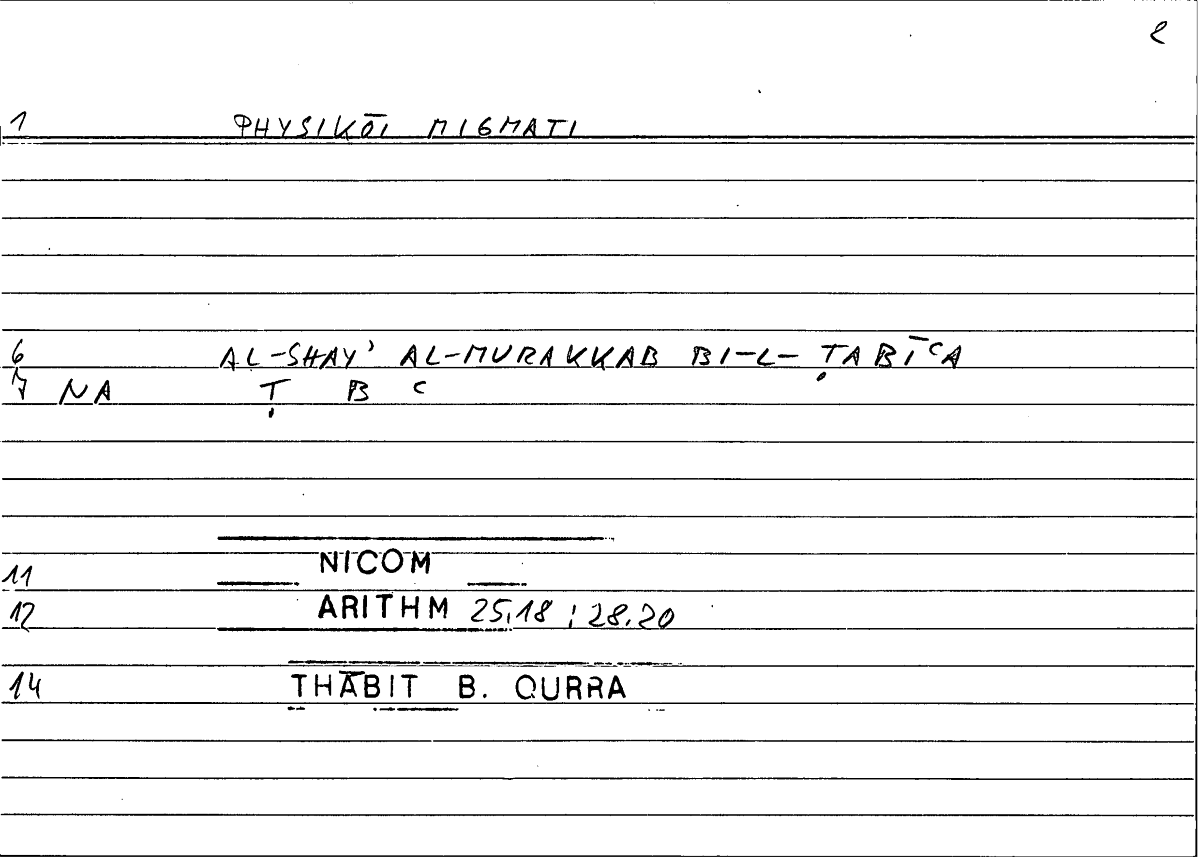 2
1 PHYSIKŌI MIGMATI
6 AL-SHAY' AL-MURAKKAB BI-L-ṬABĪ‘A
7 NA Ṭ B ‘
11 NICOM
12 ARITHM 25,18 ; 28,20
14 THĀBIT B. QURRA